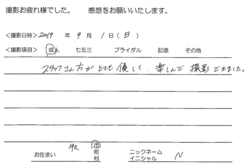 撮影お疲れ様でした。 感想をお願いいたします。
＜撮影日時＞ 2019 年 9 月 1 日 ( 日 )
＜撮影項目＞ 成人 七五三 ブライダル 記念 その他
スタッフさん方がとても優しく、楽しんで撮影できました。
お住まい 市 町 村 ニックネーム イニシャル N